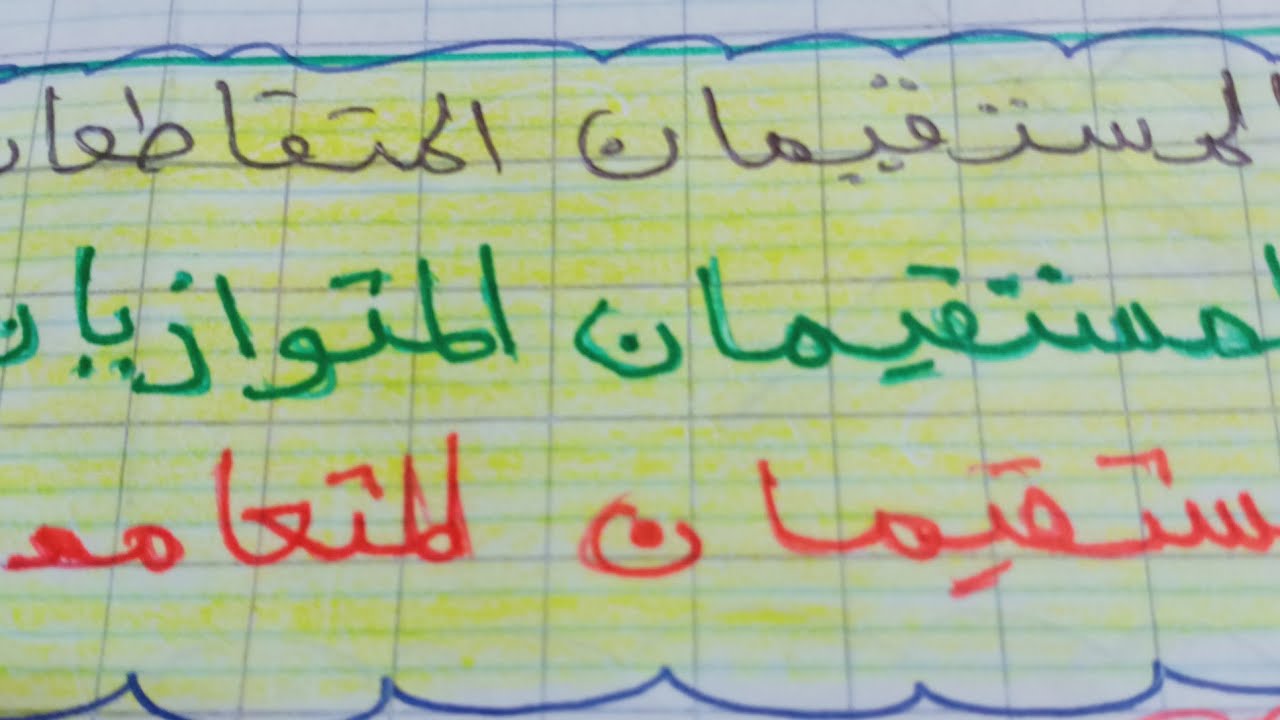 المستقيمان المتقاطعان
المستقيمان المتوازيان
ستقيمان المتعامد